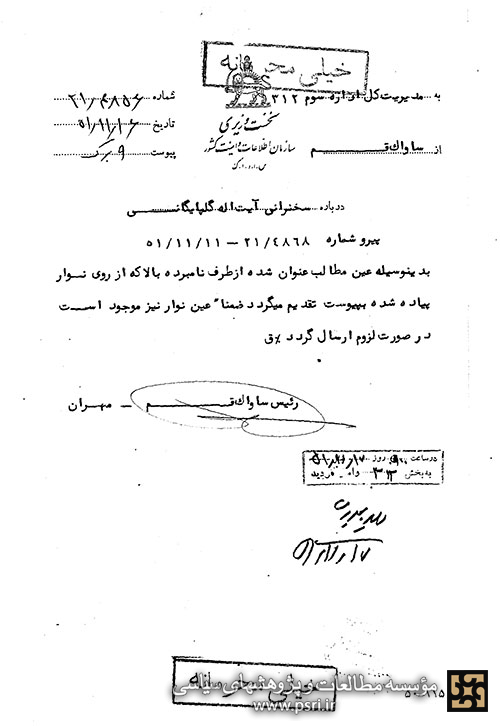 خیلی محرمانه
به مدیریت کل اداره سوم ۳۱۲
از ساواک قم
نخست وزیری
سازمان اطلاعات و امنیت کشور
س.ا.و.ا.ک
شماره ۲۱/۴۸۵۶
تاریخ ۵۱/۱۱/۱۶
پیوست ۹ برگ
درباره سخنرانی آیت اله گلپایگانی
پیرو شماره ۲۱/۴۸۶۸ – ۵۱/۱۱/۱۱
بدینوسیله عین مطالب عنوان شده از طرف نامبرده بالا که از روی نوار
پیاده شده بپیوست تقدیم میگردد ضمنا" عین نوار نیز موجود است
در صورت لزوم ارسال گردد
رئیس ساواک قم – مهران
در ساعت روز
به بخش ۳۱۲ وارد گردید
خیلی محرمانه
مؤسسه مطالعات و پژوهشهای سیاسی
www.psri.ir